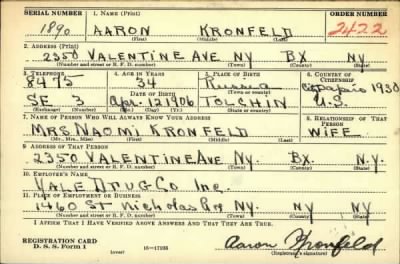 SERIAL NUMBER 1. NAME (Print) ORDER NUMBER
1890 AARON KRONFELD 2422
(First) (Middle) (Last)
2. ADDRESS (Print)
2350 VALENTINE AVE NY BX. NY
(Number and street or R. F. D. number) (Town) (County) (State)
3. TELEPHONE 4. AGE IN YEARS 5. PLACE OF BIRTH 6. COUNTRY OF CITIZENSHIP
8475 34 Russia
DATE OF BIRTH
SE 3 Apr. 12 1906 TOLCHIN U.S.
7. NAME OF PERSON WHO WILL ALWAYS KNOW YOUR ADDRESS 8. RELATIONSHIP OF THAT PERSON
MRS NAOMI KRONFELD WIFE
(Mr., Mrs., Miss) (First) (Middle) (Last)
9. ADDRESS OF THAT PERSON
2350 VALENTINE AVE NY. BX. N.Y.
(Number and street or R. F. D. number) (Town) (County) (State)
10. EMPLOYER'S NAME
YALE DRUG CO Inc.
11. PLACE OF EMPLOYMENT OR BUSINESS
1460 ST Nicholas Ave NY. NY NY
(Number and street or R. F. D. number) (Town) (County) (State)
I AFFIRM THAT I HAVE VERIFIED ABOVE ANSWERS AND THAT THEY ARE TRUE.
REGISTRATION CARD
D. S. S. Form 1 (over) 16—17105 Aaron Kronfeld
(Registrant's signature)